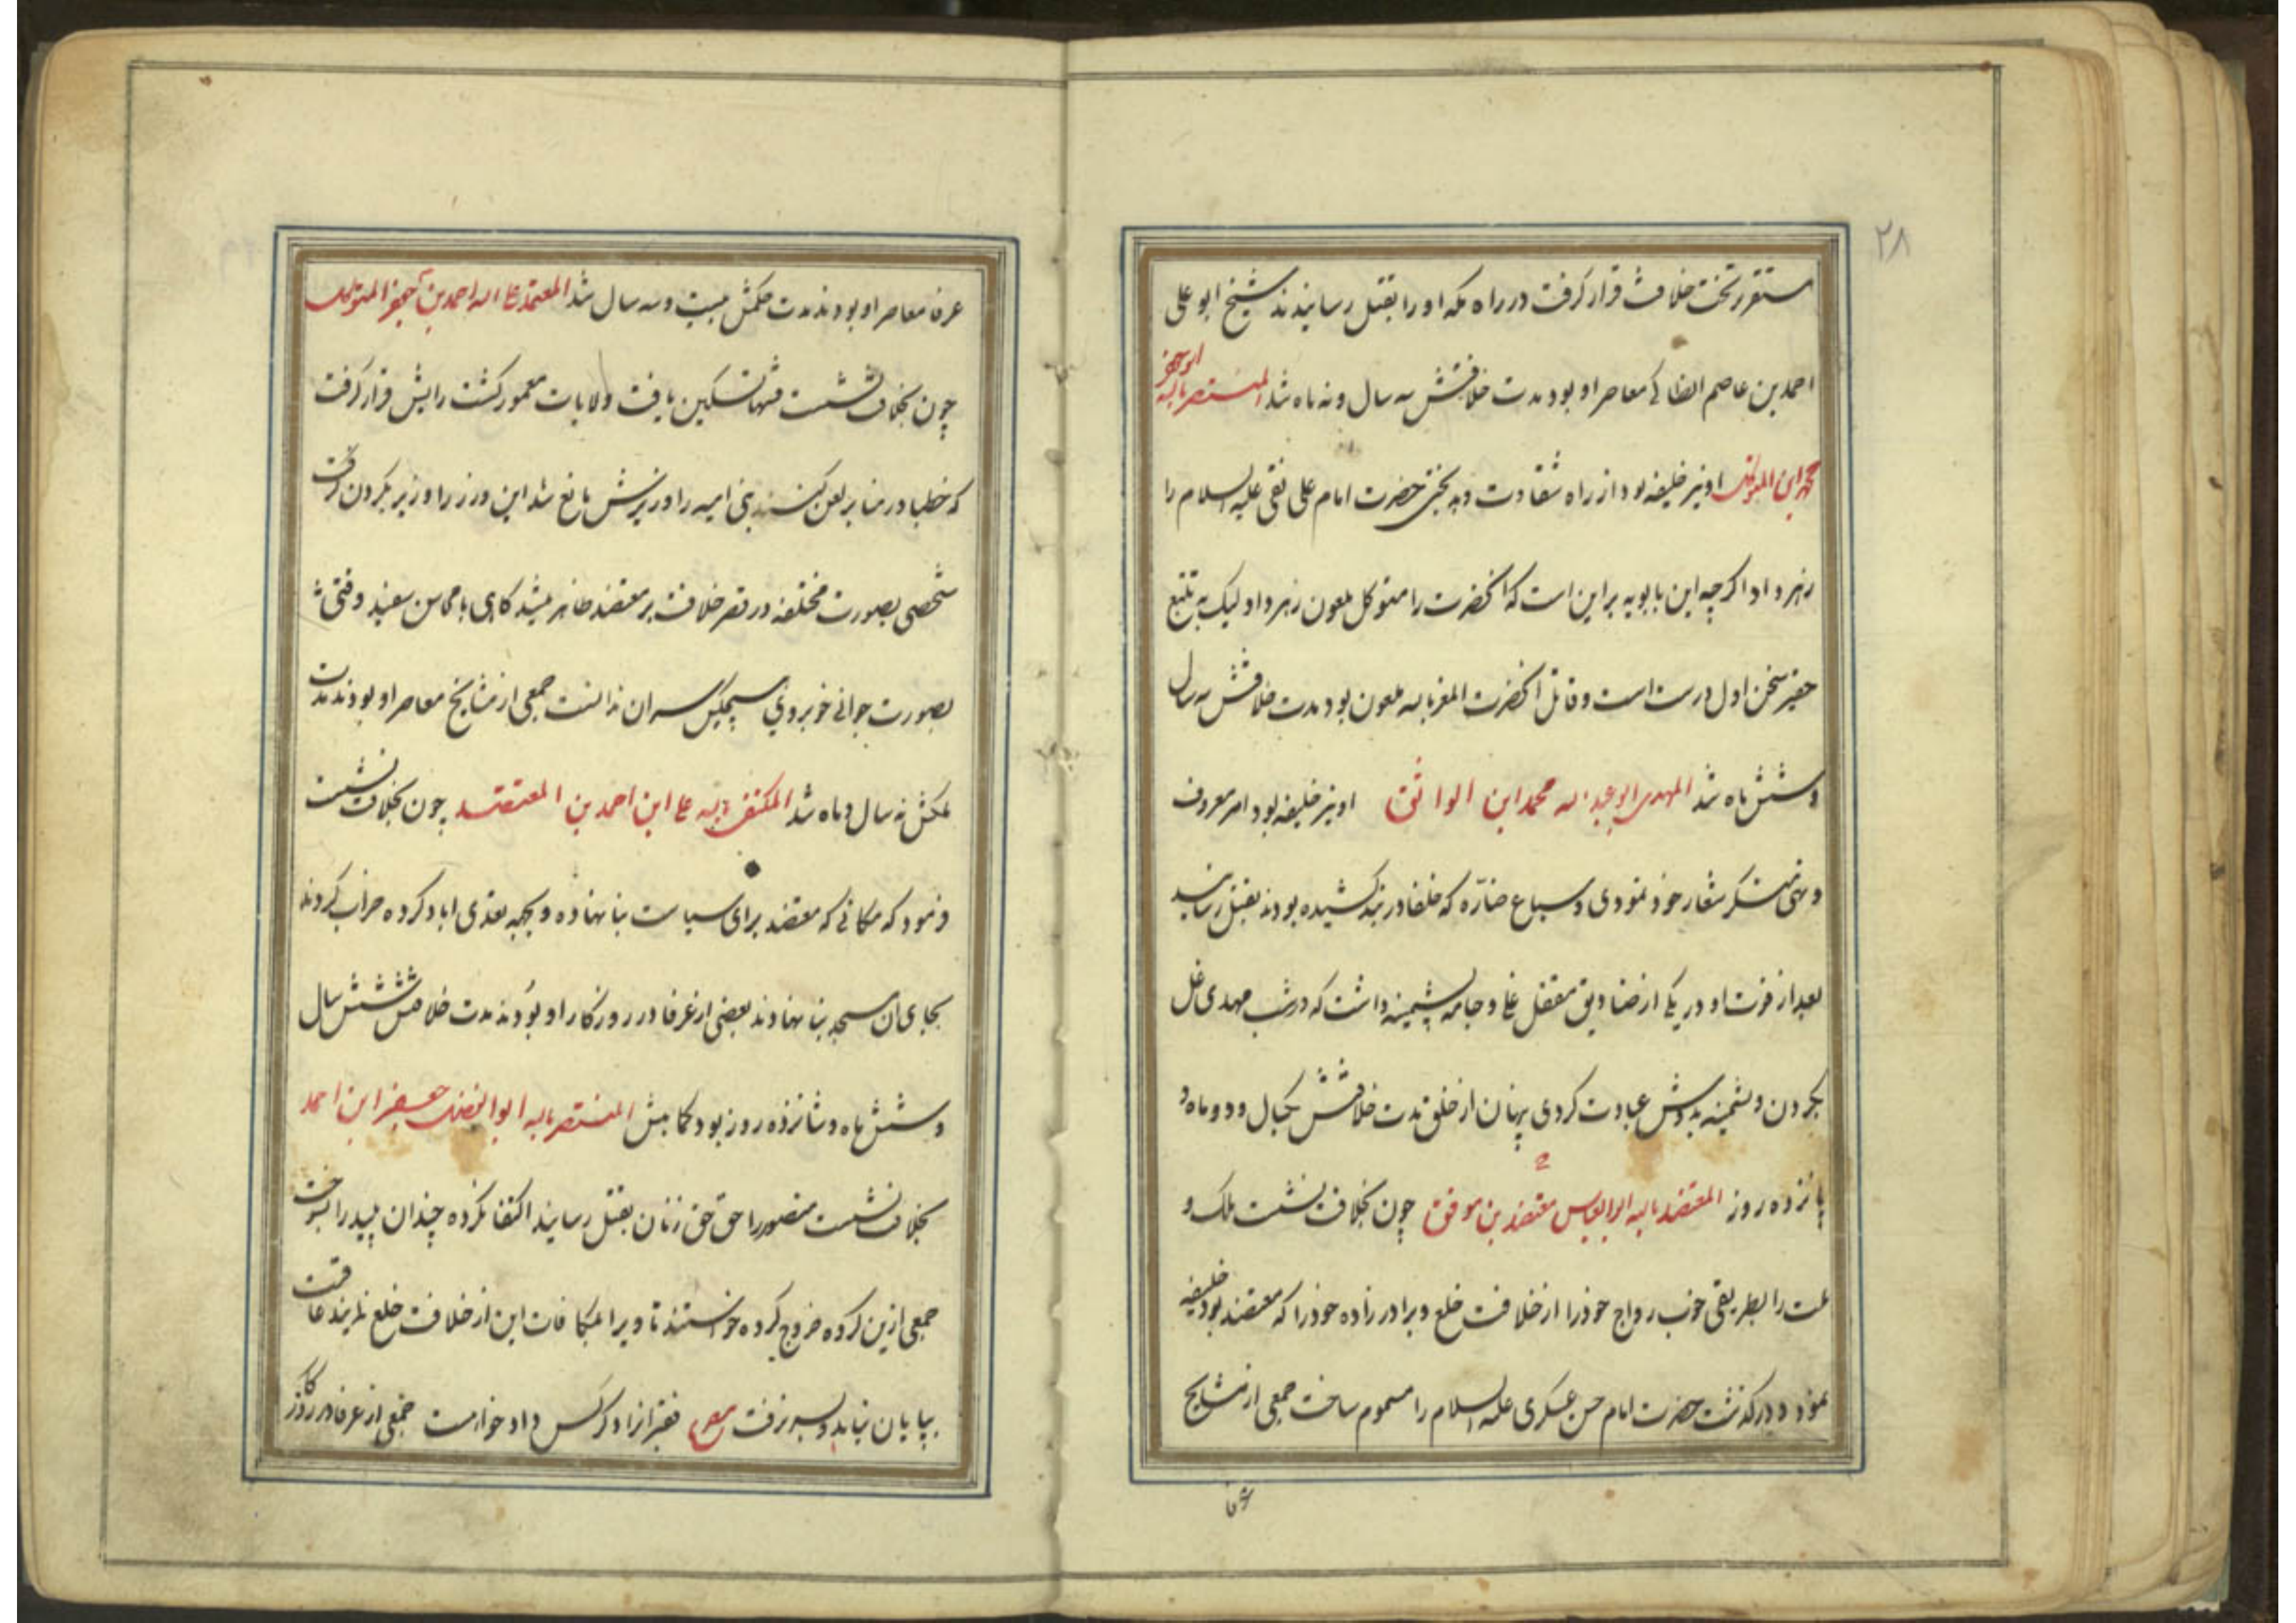 ۲۸
مستقر تخت خلافت قرار گرفت در راه مکه او را بقتل رسانیدند شیخ ابو علی
احمد بن عاصم انطاکی معاصر او بود مدت خلافتش سه سال و نه ماه شد المستنصر بالله ابو جعفر
محمد ابن المتوکل او نیز خلیفه بود از راه شقاوت و بدبختی حضرت امام علی نقی علیه السلام را
زهر داد اگر چه ابن بابویه بر این است که آنحضرت را متوکل ملعون زهر داد و لیک به تتبع
حقیر سخن اول درست است و قاتل آنحضرت المعز بالله ملعون بود مدت خلافتش سه سال
و شش ماه شد المهدی ابو عبد الله محمد ابن الواثق او نیز خلیفه بود امر معروف
و نهی منکر شعار خود نمودی و سباع ضاره که خلفا در بند کشیده بودند بقتل رسانید
بعد از فوت او در یکی از صنادیق مقفل غل و جامه پشمینه داشت که در شب مهدی غل
بگردن و پشمینه بدوش عبادت کردی پنهان از خلق مدت خلافتش یکسال و دو ماه و
پانزده روز المعتضد بالله ابو العباس معتضد بن موفق چون بخلافت نشست ملک و
ملت را بطریقی خوب رواج خود را از خلافت خلع و برادر زاده خود را که معتضد بود خلیفه
نمود و در گذشت حضرت امام حسن عسکری علیه السلام را مسموم ساخت جمعی از مشایخ
عرفا معاصر او بودند مدت حکمش بیست و سه سال شد المعتمد علی الله احمد بن جعفر المتوکل
چون بخلافت نشست فتنها تسکین یافت ولایات معمور گشت رایش قرار گرفت
که خطبا در منابر لعن کنند بنی امیه را وزیرش مانع شد این وزر را وزیر بگردن گرفت
شخصی بصورت مختلفه در قصر خلافت بر معتضد ظاهر میشد گاهی با محاسن سفید وقتی
بصورت جوانی خوبروی هیچکس سر آن ندانست جمعی از مشایخ معاصر او بودند مدت
حکمش نه سال و ماه شد المکتفی بالله علی ابن احمد بن المعتضد چون بخلافت نشست
فرمود که مکانی که معتضد برای سیاست بنا نهاده و بجهه تعدی اباد کرده خراب کردند
بجای آن مسجد بنا نهادند بعضی از عرفا در روزگار او بودند مدت خلافتش شش سال
و شش ماه و شانزده روز بود کمابیش المنتصر بالله ابو الفضل جعفر ابن احمد
بخلافت نشست منصور را حق حق زنان بقتل رسانید اکتفا نکرده چندان پلید را بسوخت
جمعی ازین کرده خروج کرده خواستند تا ویرا بمکافات این از خلافت خلع نمایند عاقبت
بپایان نیامد و بسر نرفت مصرع فقیر ازاد کس داد خواست جمعی از عرفا در روزگار
عرفا